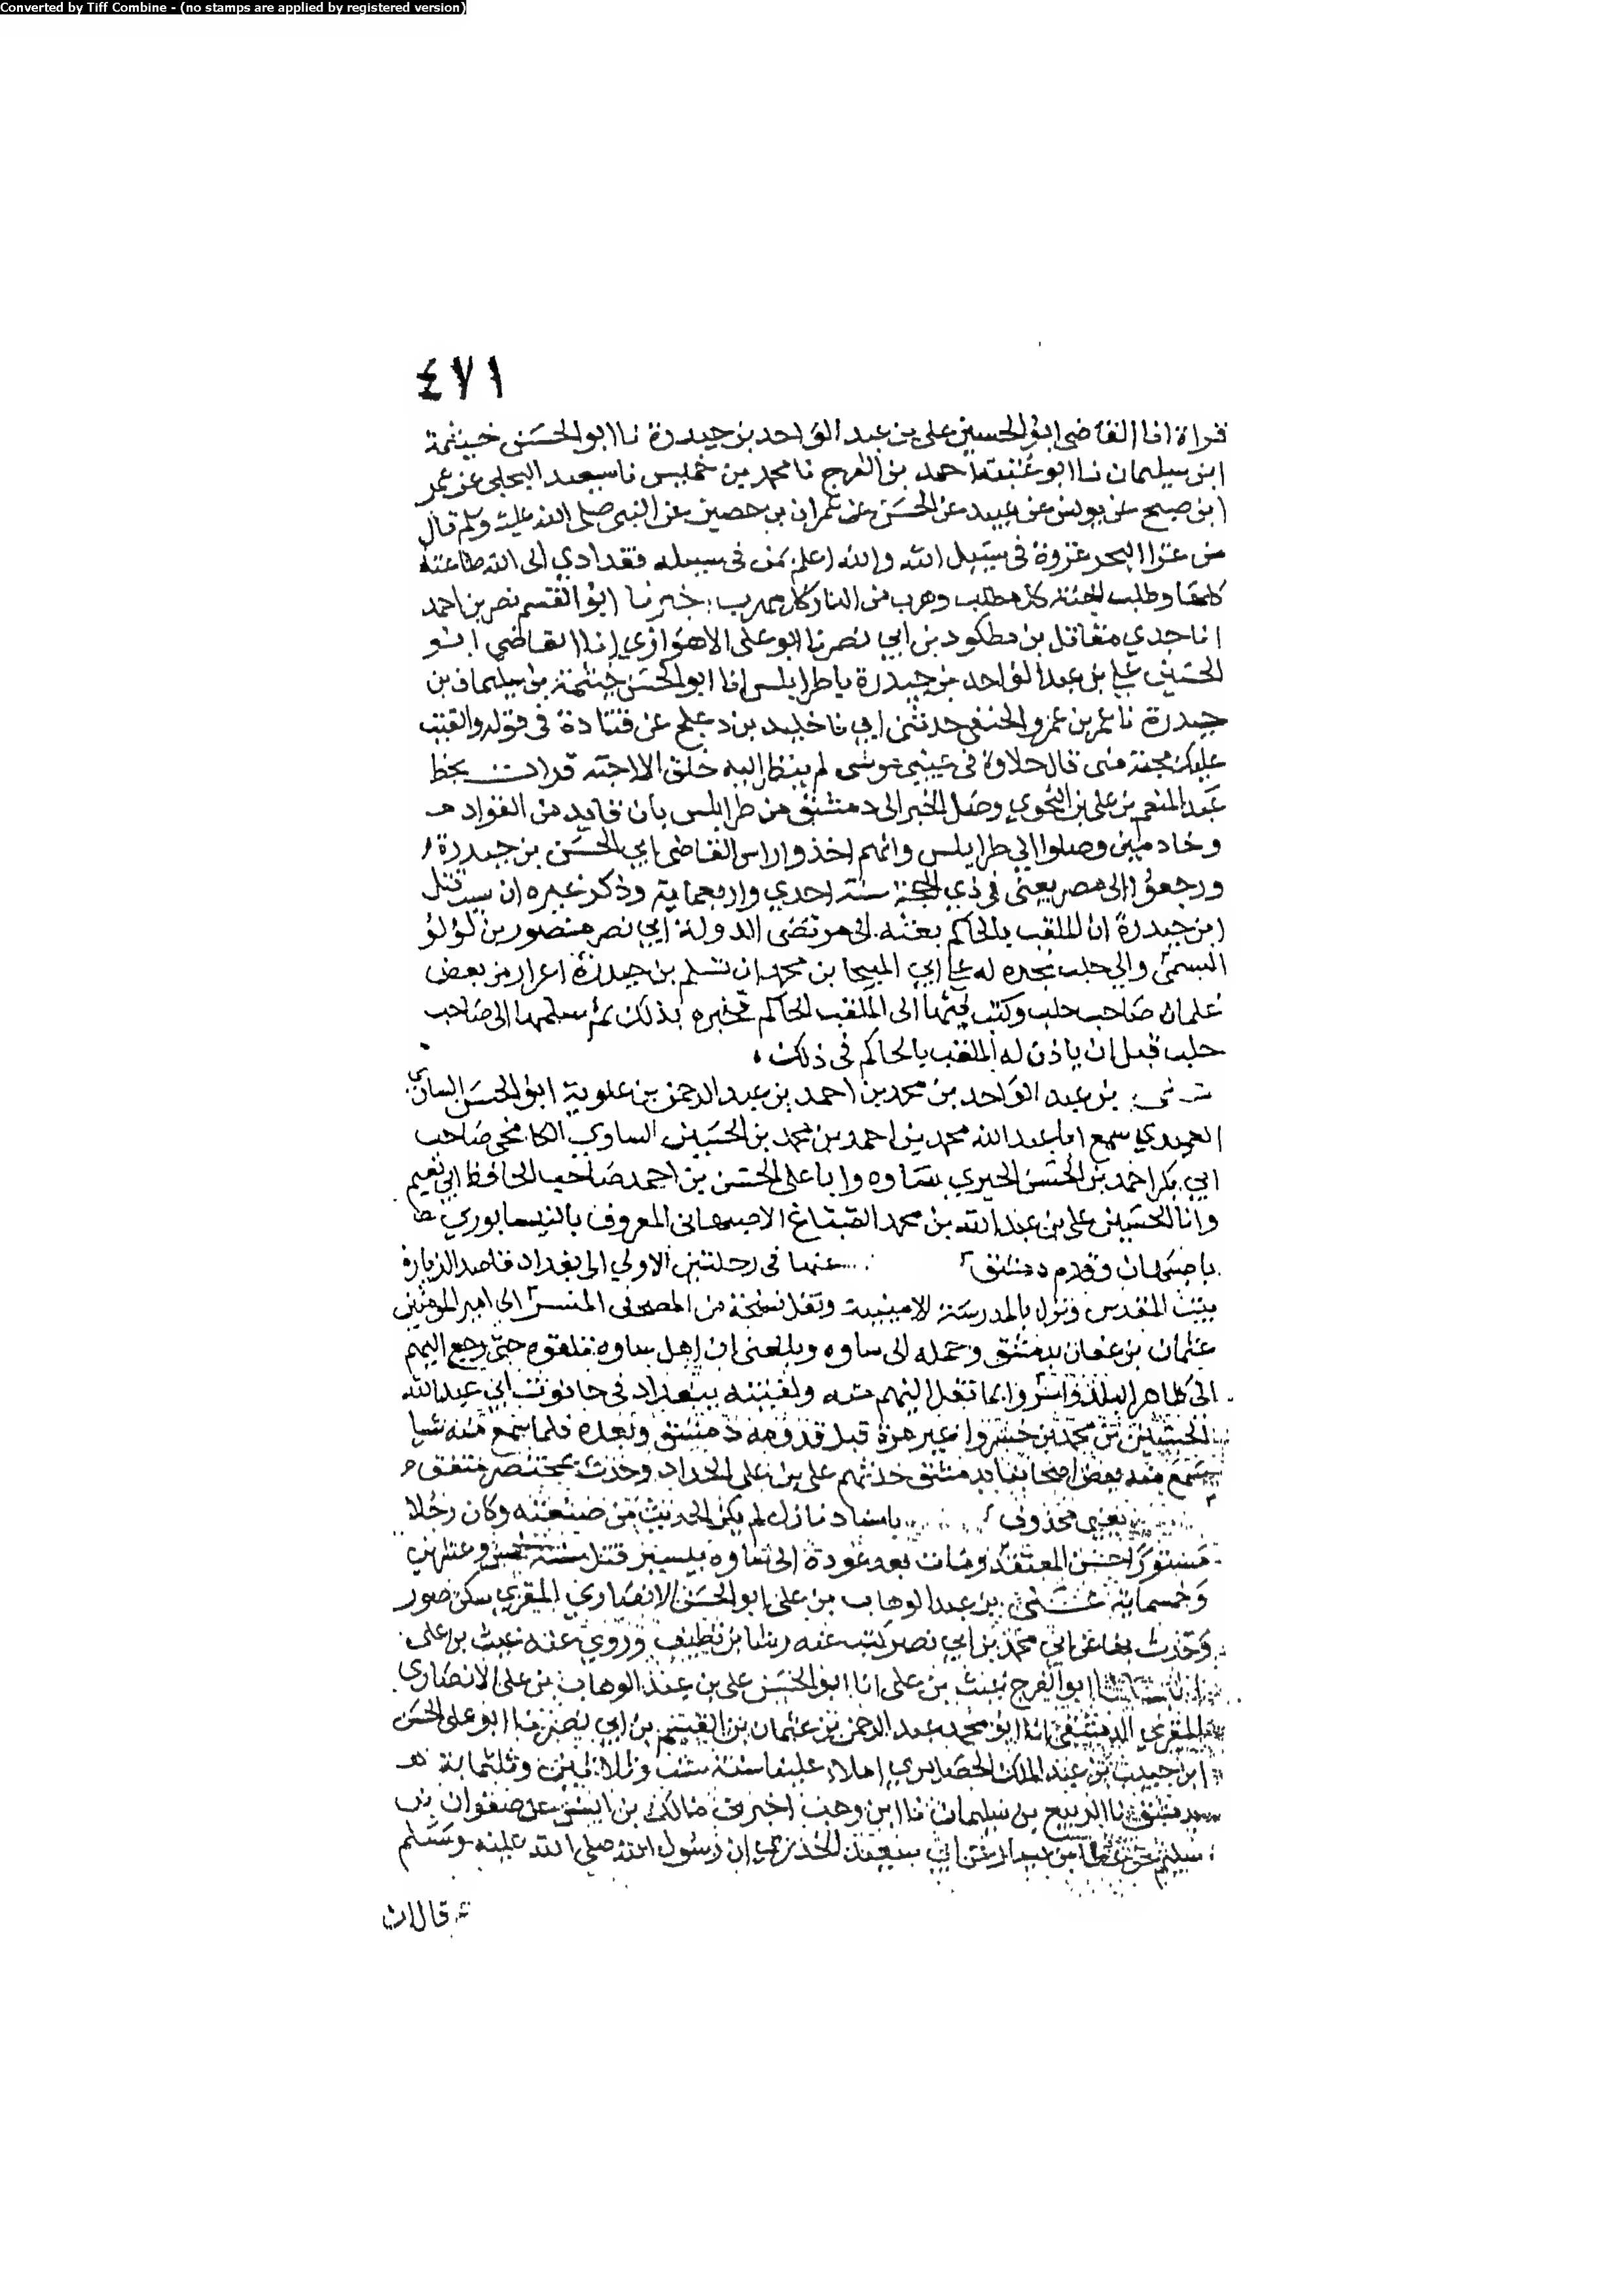 Converted by Tiff Combine - (no stamps are applied by registered version)
٤٧١
قراة انا القاضي ابو الحسين علي بن عبد الواحد بن حيدرة نا ابو الحسن خيثمة
ابن سليمان نا ابو عتبة احمد بن الفرج نا محمد بن خميس نا سعيد البجلي عن عمر
ابن صبح عن يونس عن عبيد عن الحسن عن عمران بن حصين عن النبي صلى الله عليه وسلم قال
من غزا البحر غزوة في سبيل الله والله اعلم بمن في سبيله فقد ادي الى الله طاعته
كلها وطلب الجنة كل مطلب وهرب من النار كل مهرب اخبرنا ابو القسم نصر بن احمد
انا جدي مقاتل بن مطكود بن ابي نصر نا ابو علي الاهوازي انا القاضي ابو
الحسين علي بن عبد الواحد بن حيدرة باطرابلس انا ابو الحسن خيثمة بن سليمان بن
حيدرة نا عمر بن عمرو الحنفي حدثني ابي نا خليد بن دعلج عن قتادة في قوله والقيت
عليك محبة مني قال حلاوة في عيني موسى لم ينظر اليه خلق الا احبه قرات بخط
عبد المنعم بن علي بن النحوي وصل الخبر الى دمشق من طرابلس بان قايد من القواد
وخادمين وصلوا الى طرابلس وانهم اخذوا راس القاضي ابي الحسن بن حيدرة
ورجعوا الى مصر يعني في ذي الحجة سنة احدي واربعماية وذكر غيره ان قتل
ابن حيدرة ان الملقب بالحاكم بعثه الى مرتضى الدولة ابي نصر منصور بن لولو
والي حلب نجده له على ابي الهيجا بن حمدان تسلم بن حيدرة اعزاز من بعض
غلمان صاحب حلب وكتب الى الملقب الحاكم يخبره بذلك ثم سلمها الى صاحب
حلب قبل ان ياذن له الملقب بالحاكم في ذلك
علي بن عبد الواحد بن محمد بن احمد بن عبد الرحمن بن علوية ابو الحسن الساوي
سمع ابا عبد الله محمد بن احمد بن محمد بن الحسين الساوي الكامخي صاحب
ابي بكر احمد بن الحسن الحيري بساوه وابا علي الحسن بن احمد صاحب الحافظ ابي نعيم
وابا الحسين علي بن عبد الله بن محمد الصباغ الاصبهاني المعروف بالنيسابوري
باصبهان وقدم دمشق عنها في رحلتين الاولي الى بغداد قاصدا لزيارة
بيت المقدس ونزل بالمدرسة الامينية ونقل نسخة من المصحف المنسوب الى امير المومنين
عثمان بن عفان بدمشق وحمله الى ساوه وبلغني ان اهل ساوه تلقوه حتى رجع اليهم
الى ظاهر البلد وسروا بما نقل اليهم منه ولقيته ببغداد في حانوت ابي عبد الله
الحسين بن محمد بن خسروا غير مرة قبل قدومه دمشق وبعده فلم اسمع منه شيا
وسمع منه بعض اصحابنا بدمشق حدثهم علي بن علي الحداد وحدث بمختصر متفق
يعني محذوف باسناد نازل لم يكن الحديث من صنعته وكان رجلا
مستورا حسن المعتقد ومات بعد عوده الى ساوه بيسير قبل سنة خمس وعشرين
وخمسماية علي بن عبد الوهاب بن علي ابو الحسن الانصاري المقري سكن صور
وحدث بها عن ابي محمد بن ابي نصر كتب عنه رشا بن نظيف وروي عنه غيث بن علي
انا ابو الفرج غيث بن علي انا ابو الحسن علي بن عبد الوهاب بن علي الانصاري
المقري الدمشقي انا ابو محمد عبد الرحمن بن عثمان بن القسم بن ابي نصر نا ابو علي الحسن
ابن حبيب بن عبد الملك الحصايري املا علينا سنة ست وثلاثين وثلثماية
بدمشق نا الربيع بن سليمان نا ابن وهب اخبرني مالك بن انس عن صفوان بن
سليم عن عطا بن يسار عن ابي سعيد الخدري ان رسول الله صلى الله عليه وسلم
قال ان